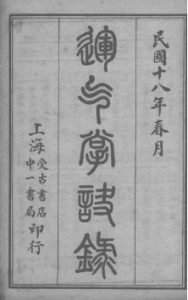 民國十八年春月
運气掌訣錄
上海受古書店
中一書局印行